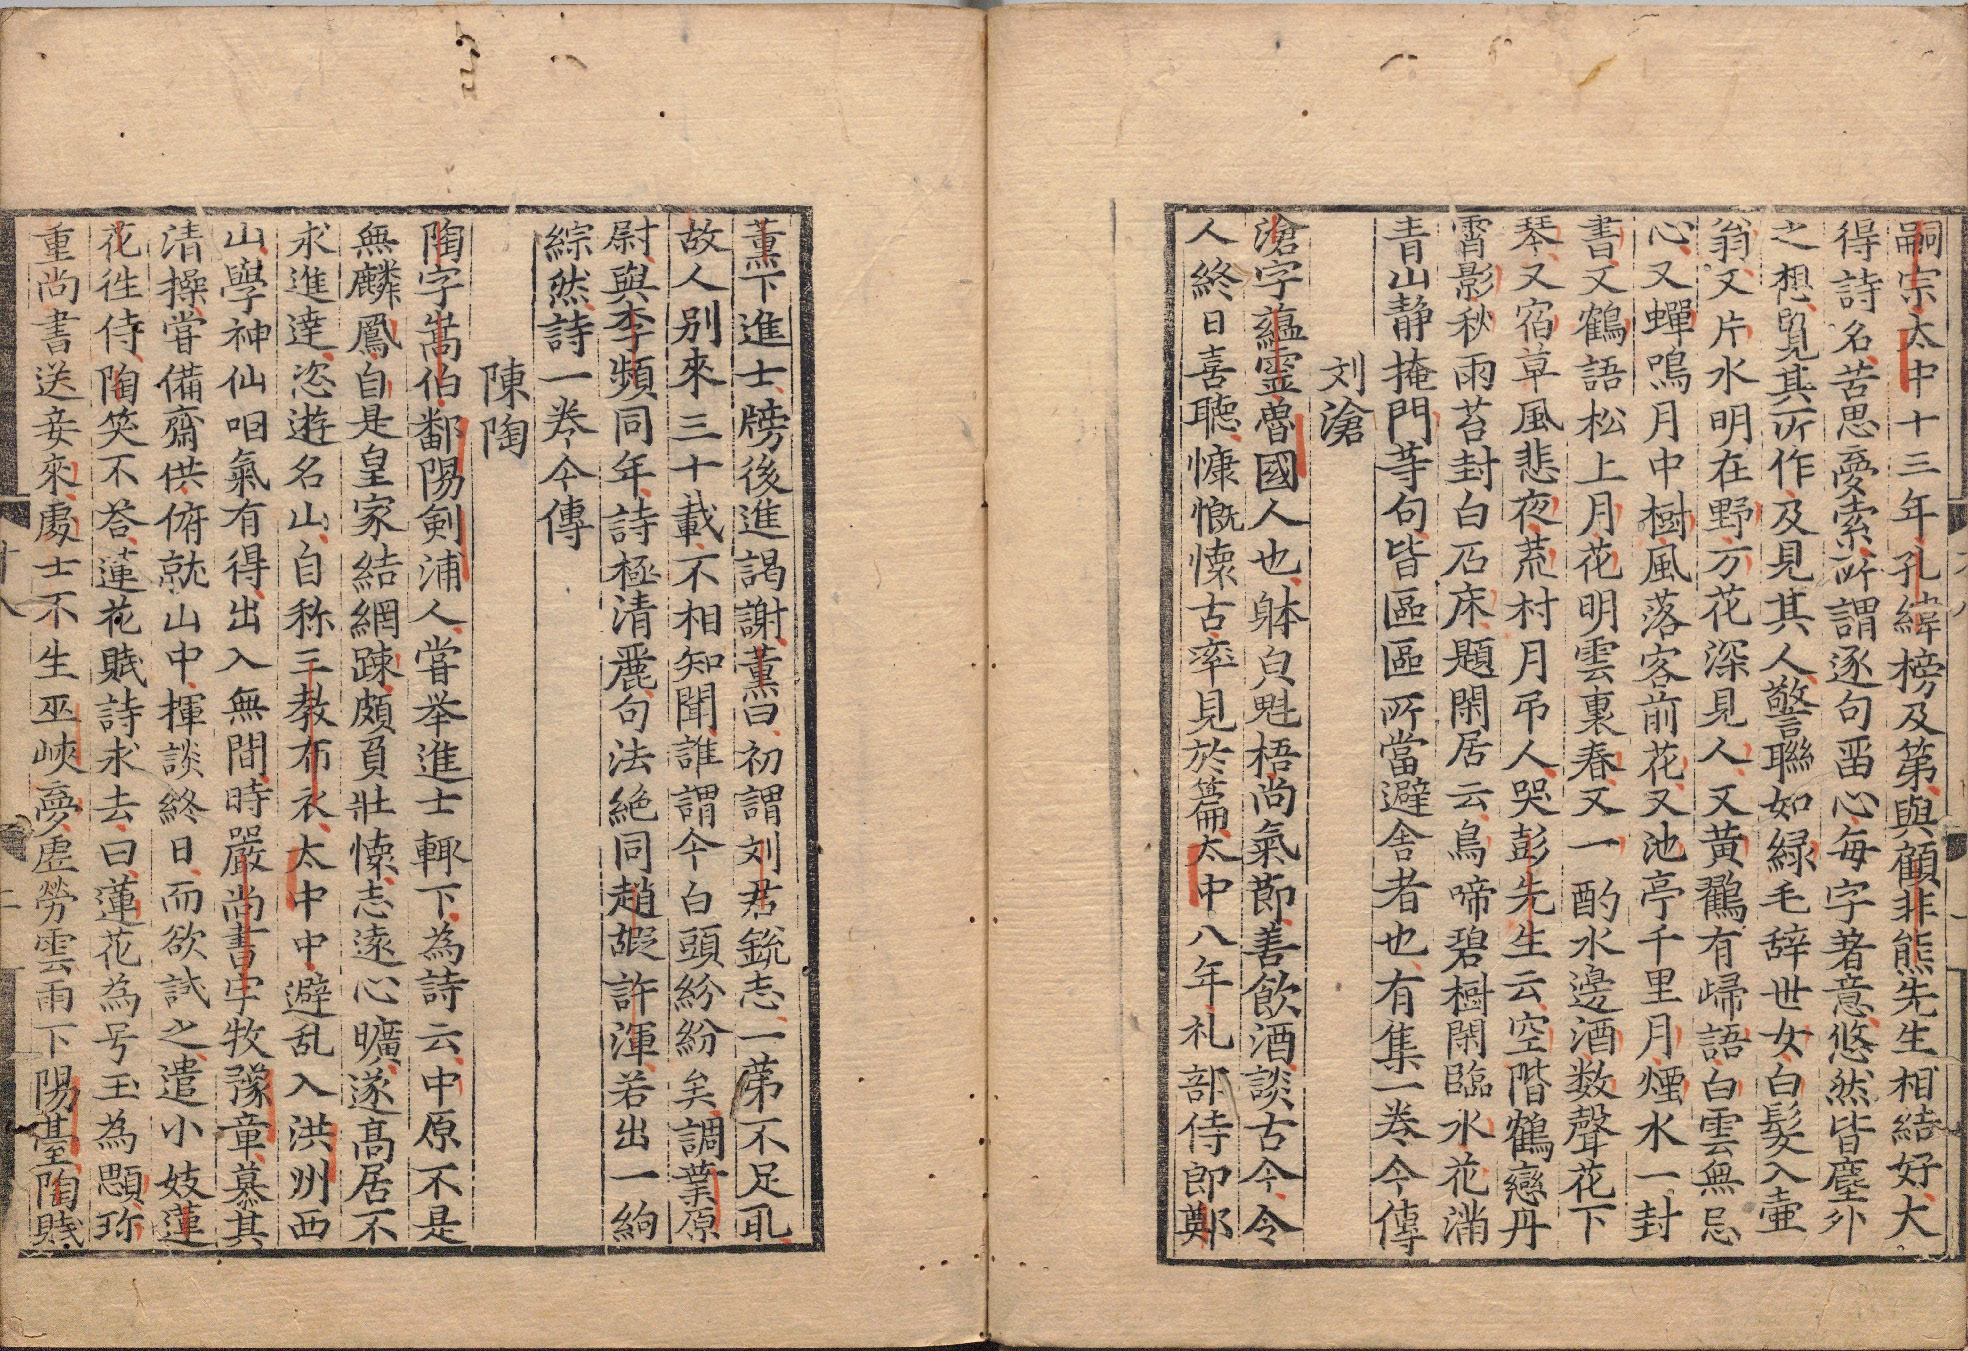 嗣宗太中十三年孔緯榜及第與顧非熊先生相結好大
得詩名苦思夐索所謂逐句畱心每字著意悠然皆塵外
之想覧其所作及見其人警聯如緑毛辞世女白髪入壷
翁又片水明在野万花深見人又黄鸛有歸語白雲無忌
心又蟬鳴月中樹風落客前花又池亭千里月煙水一封
書又鶴語松上月花明雲裏春又一酌水邊酒数聲花下
琴又宿草風悲夜荒村月吊人哭彭先生云空階鶴戀丹
霄影秋雨苔封白石床題閑居云鳥啼碧樹閑臨水花滿
青山静掩門等句皆區區所當避舎者也有集一巻今傳
刘滄
滄字蘊霊魯國人也躰皃魁梧尚氣節善飲酒談古今令
人終日喜聴慷慨懐古率見於篇太中八年礼部侍郎鄭
薫下進士牓後進謁謝薫曰初謂刘君鋭志一第不足取
故人别來三十載不相知聞誰謂今白頭紛紛矣調葉原
尉與李頻同年詩極清麗句法絶同趙嘏許渾若出一絇
綜然詩一巻今傳
陳陶
陶字嵩伯鄱陽剣浦人甞举進士輙下為詩云中原不是
無麟鳳自是皇家結網踈頗負壮懐志遠心曠遂髙居不
求進達恣遊名山自称三教布衣太中中避乱入洪州西
山學神仙咽氣有得出入無間時嚴尚書宇牧豫章慕其
清操甞備齋供俯就山中揮談終日而欲試之遣小妓蓮
花徃侍陶笑不荅蓮花賦詩求去曰蓮花為号玉為顋珎
重尚書送妾來處士不生巫峡夢虚勞雲雨下陽臺陶賦